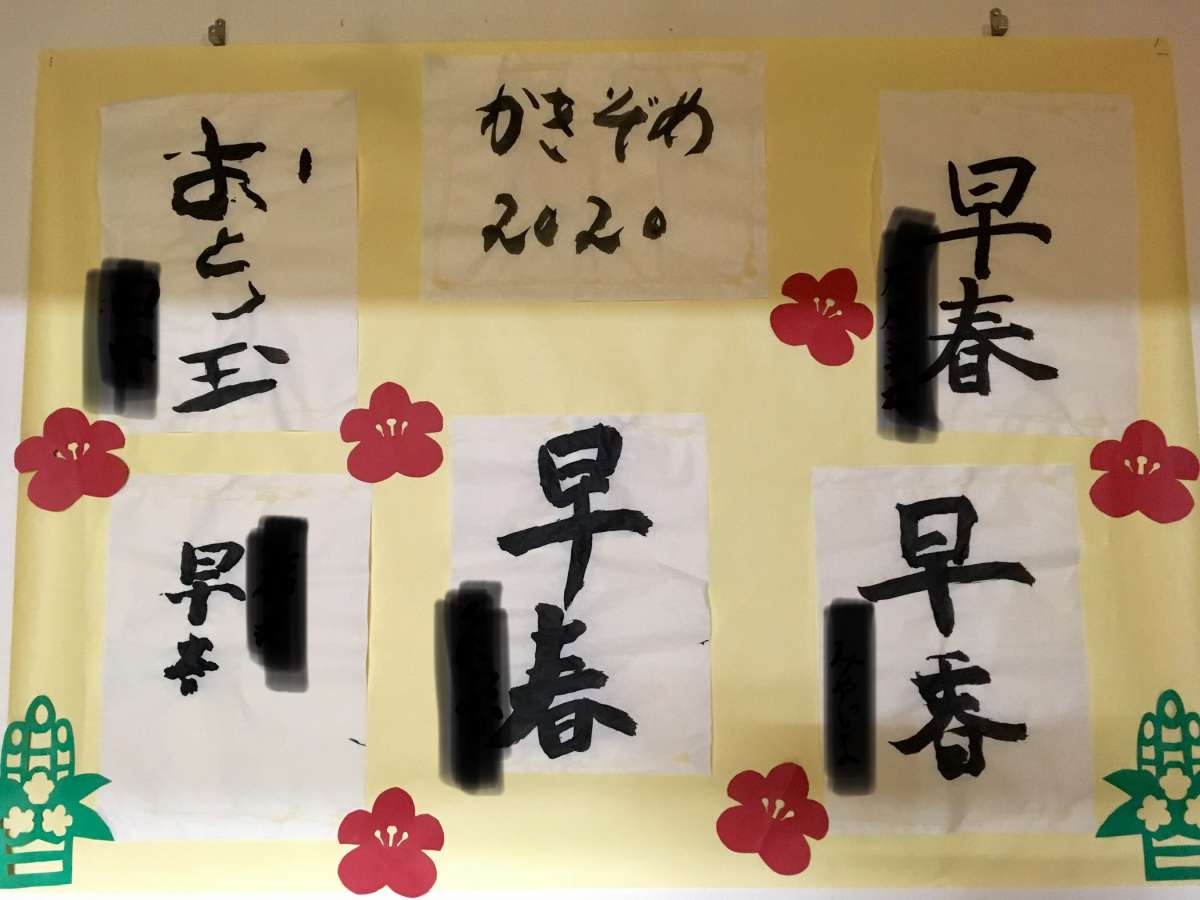 かきぞめ
2020
おとし玉
早春
早春
早春
早春